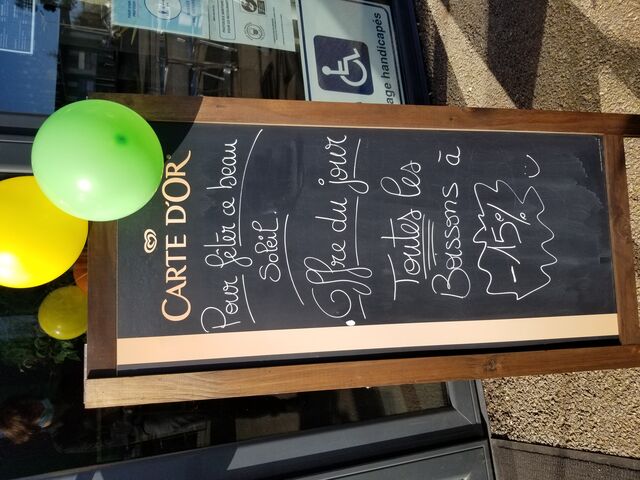 CARTE D'OR
Pour fêter ce beau
Soleil.
Offre du jour
Toutes les
Boissons à
-15%
age handicapés